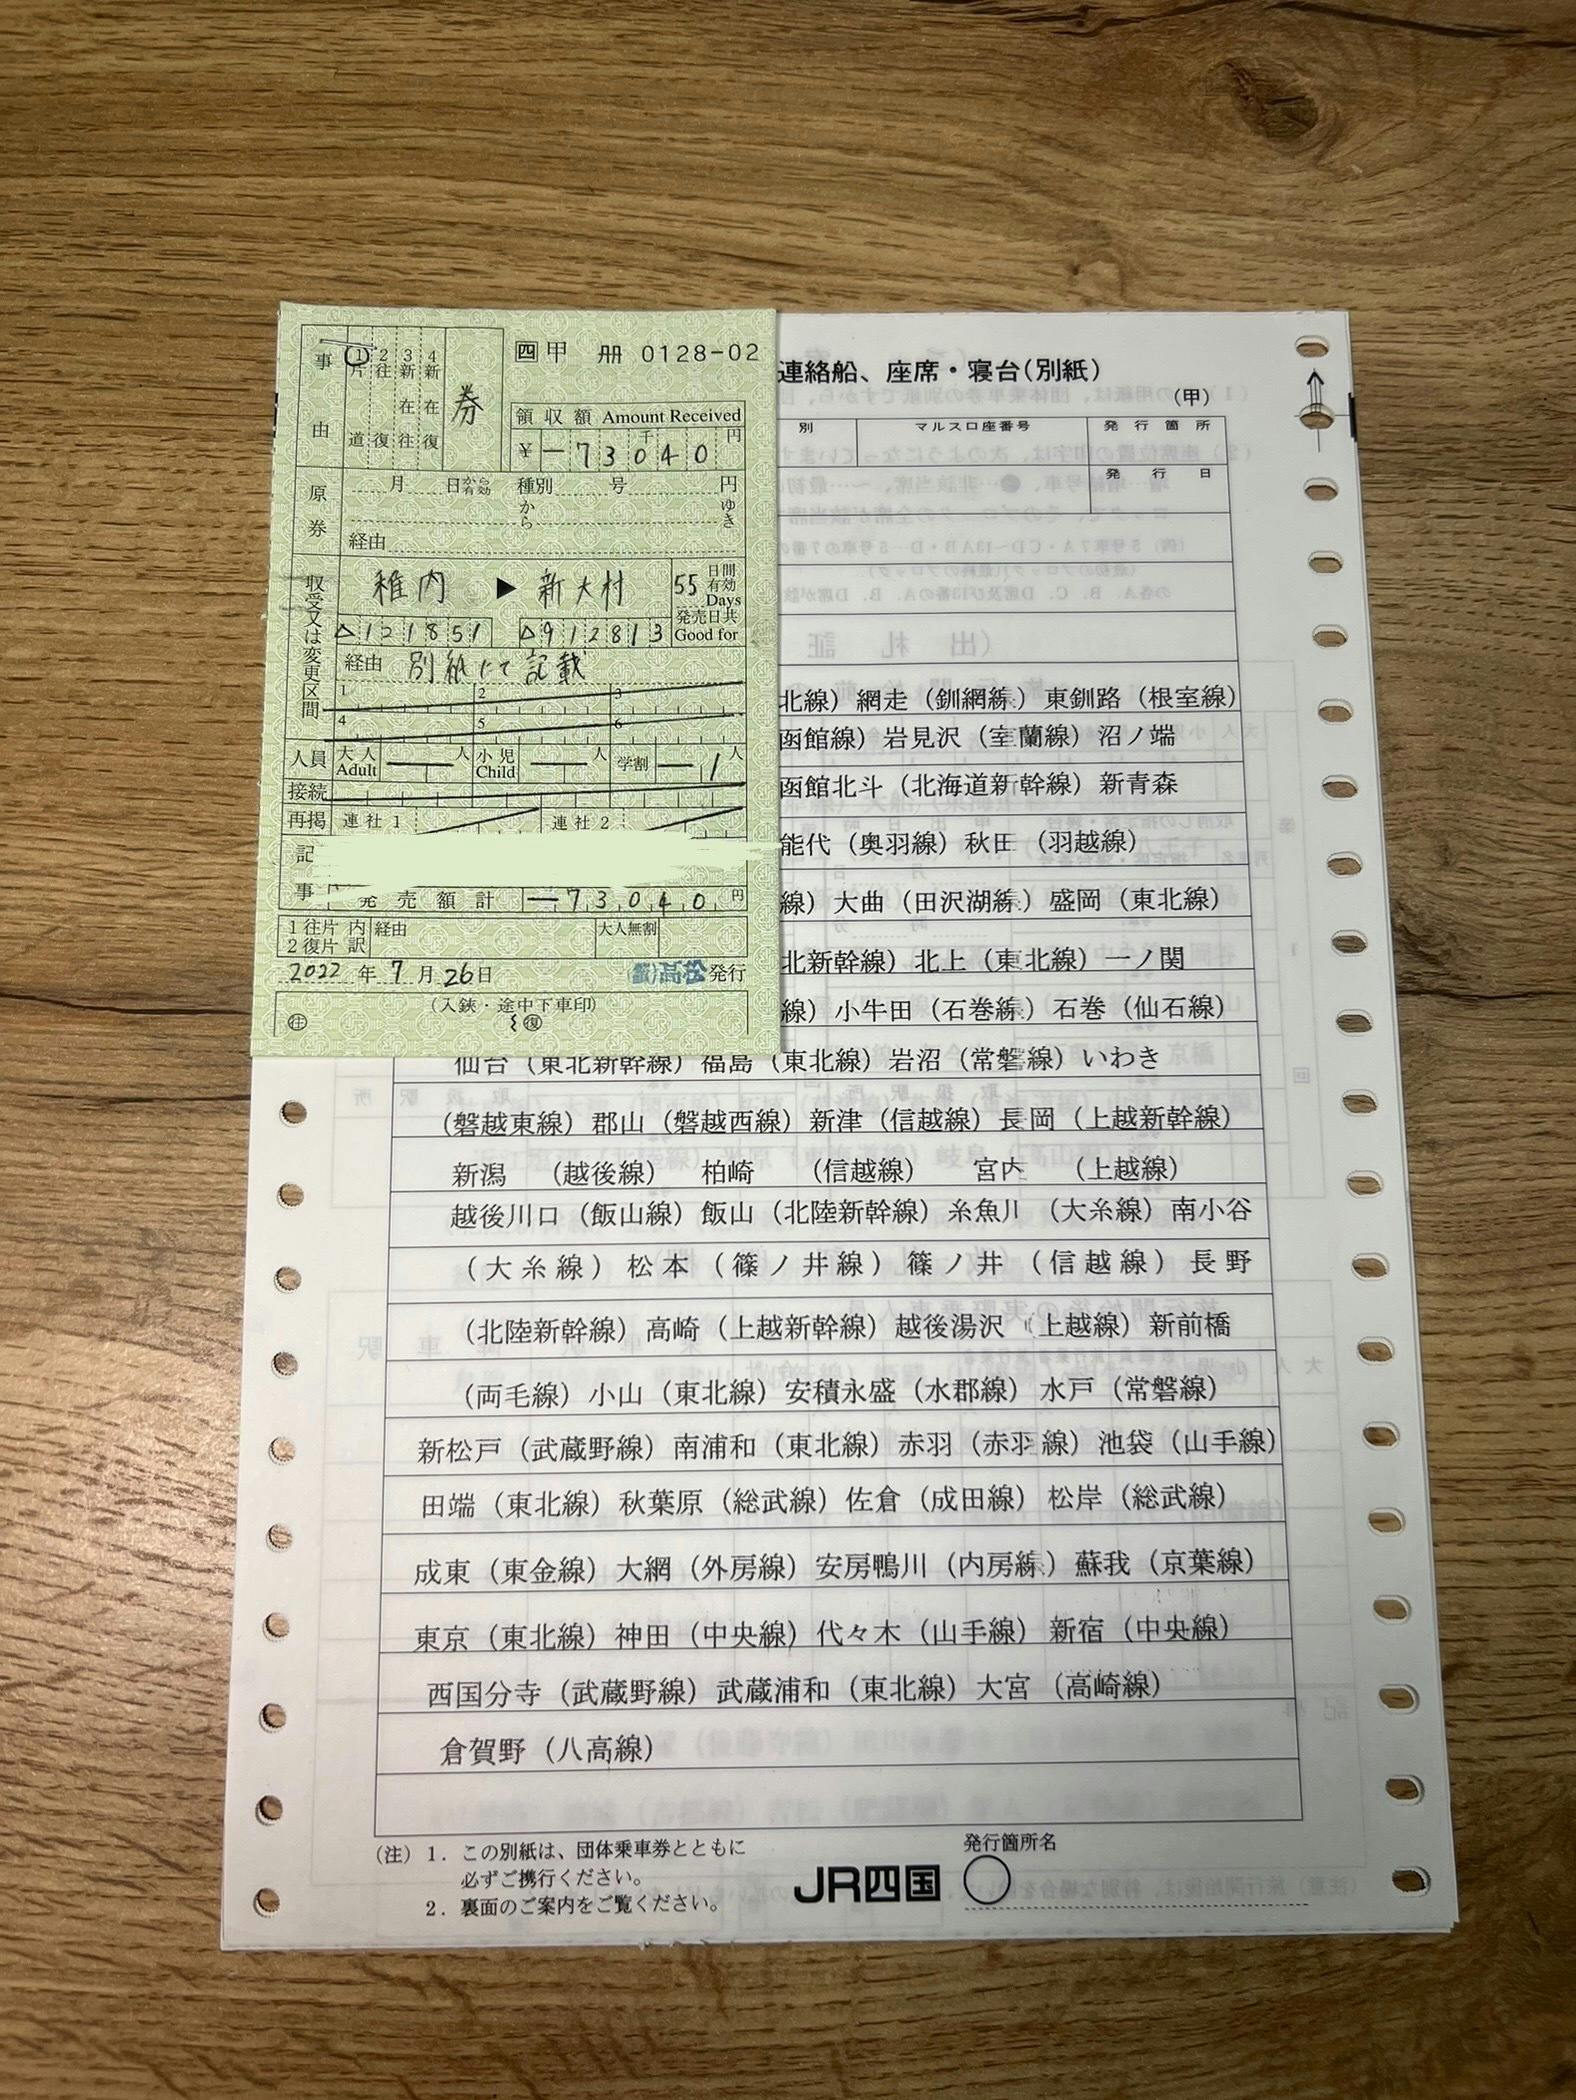 事由
1片道
2往復
3新在往
4新在復
券
四 甲 册 0128-02
領収額 Amount Received
¥-73040円
千
原券
月 日から有効 種別 号 円
から ゆき
経由
収受又は変更区間
稚内 ▶ 新大村
55 日間有効 Days
発売日共 Good for
△121851 △912813
経由 別紙にて記載
1 2 3
4 5 6
人員 大人 Adult 人 小児 Child 人 学割 1人
接続
再掲 連社1 連社2
記事
発売額計 -73040円
1往片 2復片 内訳 経由 大人無割
2022年7月26日 発行
(入鋏・途中下車印)
往 復
連絡船、座席・寝台(別紙)
(甲)
別 マルス口座番号 発行箇所
発行日
北線)網走(釧網線)東釧路(根室線)
函館線)岩見沢(室蘭線)沼ノ端
函館北斗(北海道新幹線)新青森
能代(奥羽線)秋田(羽越線)
線)大曲(田沢湖線)盛岡(東北線)
北新幹線)北上(東北線)一ノ関
線)小牛田(石巻線)石巻(仙石線)
仙台(東北新幹線)福島(東北線)岩沼(常磐線)いわき
(磐越東線)郡山(磐越西線)新津(信越線)長岡(上越新幹線)
新潟 (越後線) 柏崎 (信越線) 宮内 (上越線)
越後川口(飯山線)飯山(北陸新幹線)糸魚川(大糸線)南小谷
(大糸線)松本(篠ノ井線)篠ノ井(信越線)長野
(北陸新幹線)高崎(上越新幹線)越後湯沢(上越線)新前橋
(両毛線)小山(東北線)安積永盛(水郡線)水戸(常磐線)
新松戸(武蔵野線)南浦和(東北線)赤羽(赤羽線)池袋(山手線)
田端(東北線)秋葉原(総武線)佐倉(成田線)松岸(総武線)
成東(東金線)大網(外房線)安房鴨川(内房線)蘇我(京葉線)
東京(東北線)神田(中央線)代々木(山手線)新宿(中央線)
西国分寺(武蔵野線)武蔵浦和(東北線)大宮(高崎線)
倉賀野(八高線)
(注)1. この別紙は、団体乗車券とともに
必ずご携行ください。
2. 裏面のご案内をご覧ください。
JR四国
発行箇所名